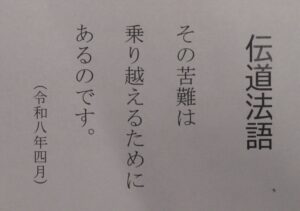 伝道法語
その苦難は
乗り越えるために
あるのです。
（令和八年四月）